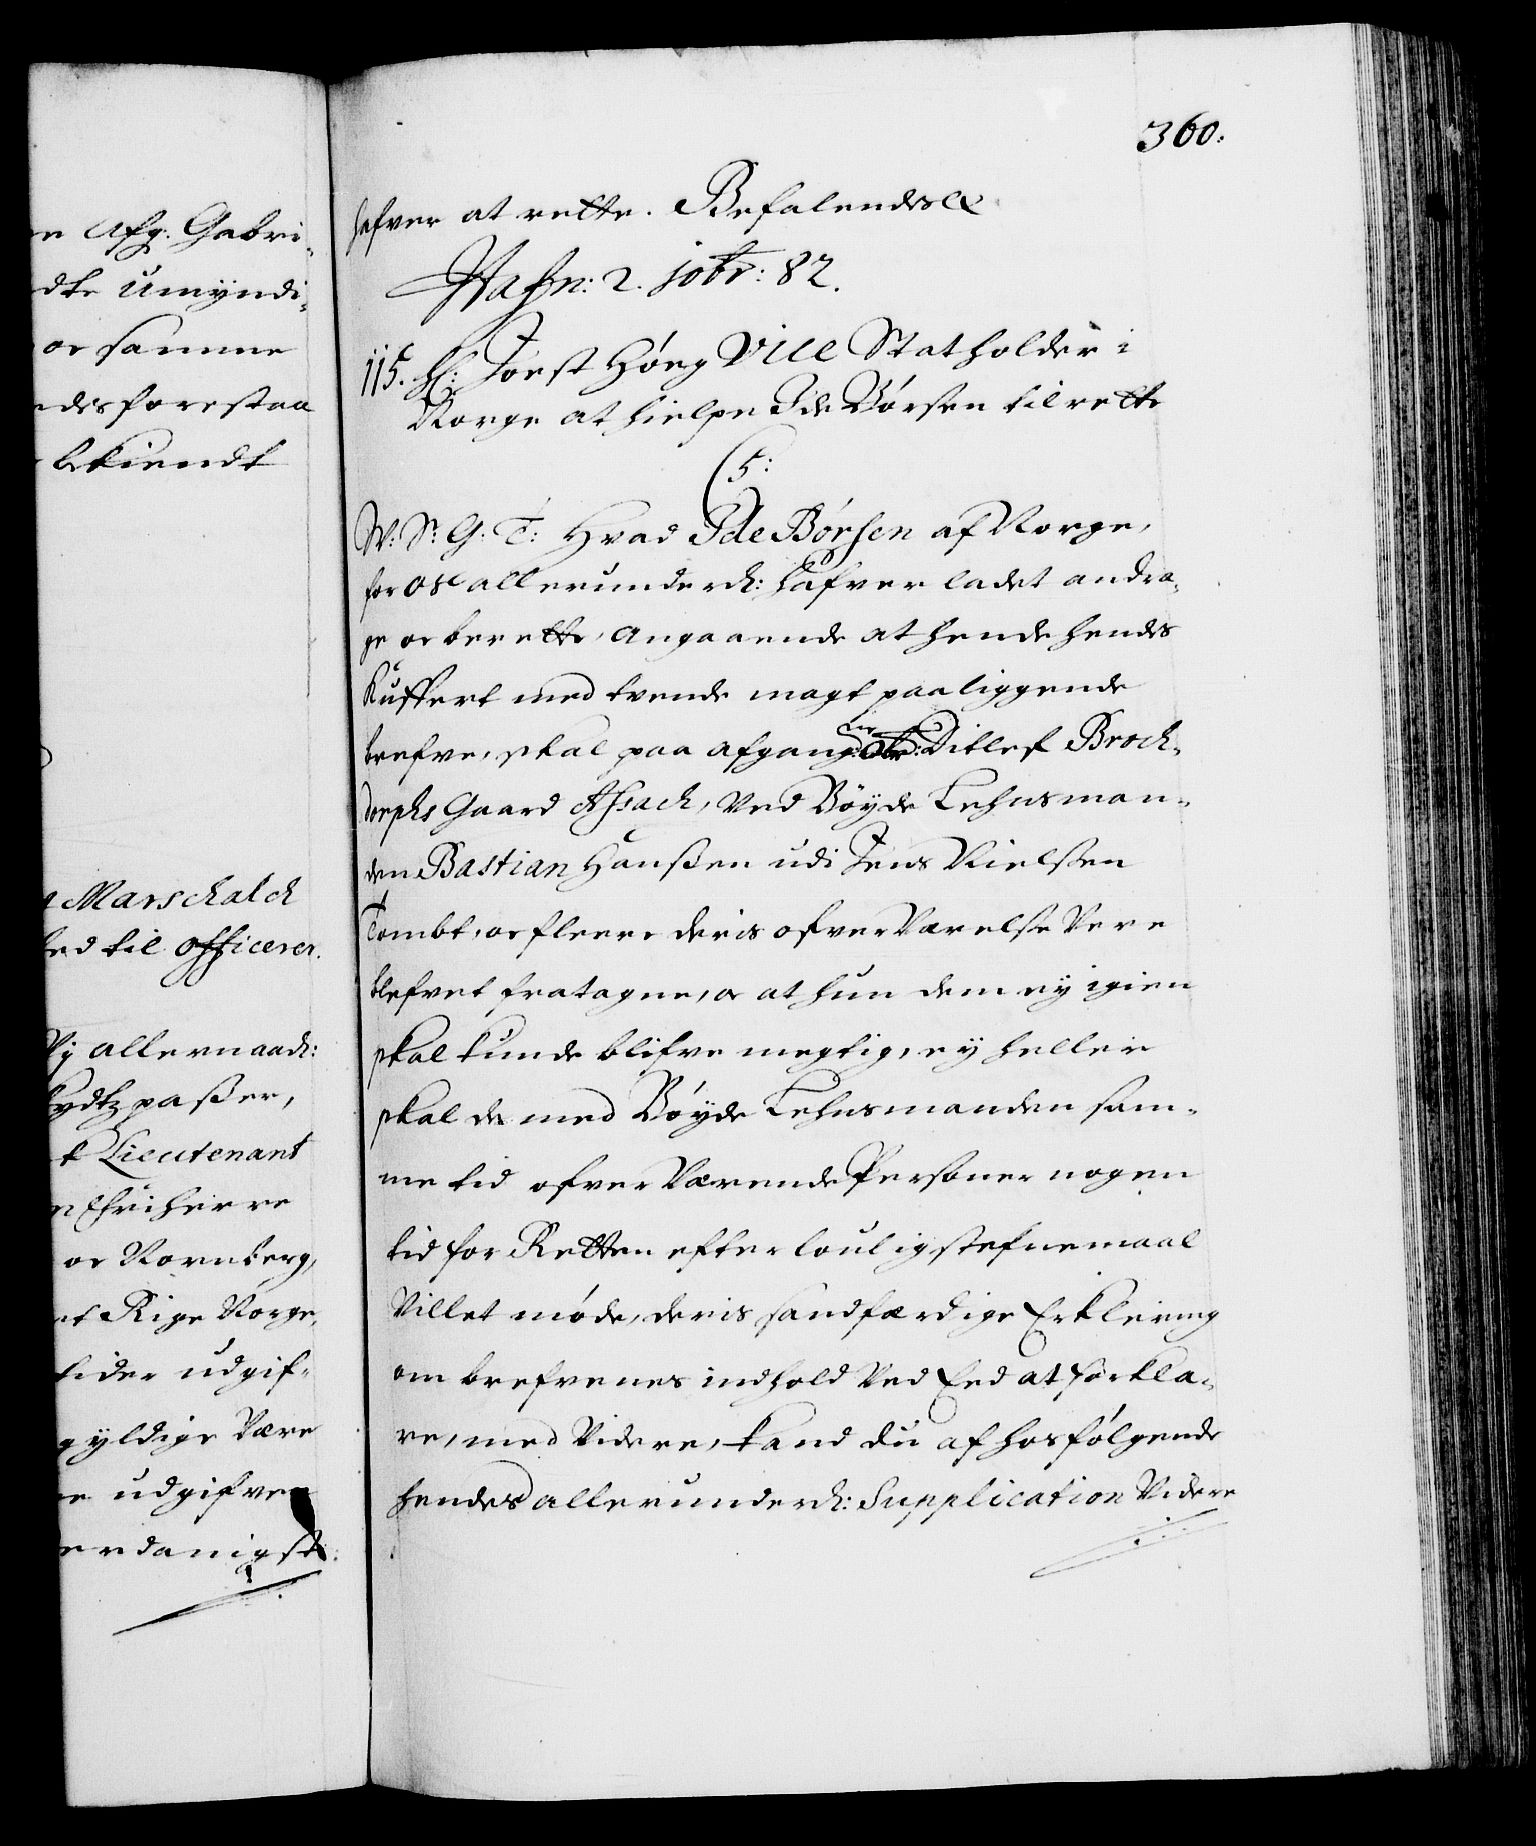 360.
hafver at rette. Befalendes &
Hafn: 2. 10br: 82.
115. H: Joest Høeg Vice Statholder i
Norge at hielpe Ide Børsen til rette
(5:
W: S: G: T: Hvad Ide Børsen af Norge,
for os allerunderd: hafver ladet andra-
ge oc berette, angaaende at hende hendes
Kuffert med tvende magt paaliggende
brefve, skal paa afgang: Ditlef Brock-
dorphs Gaard Assach, Ved Bøyde Lehnsman-
den Bastian Hanßen udi Jens Nielsen
Tombt, oc fleere deris ofverværelse Vere
blefvet fratagne, oc at hun dem ey igien
skal kunde blifve megtig, ey heller
skal de med Bøyde Lehnsmanden sam-
me tid ofverværende Personer nogen
tid for Retten efter loulig stefnemaal
Villet møde, deris sandfærdige Erklering
om brefvenes indhold Ved Eed at forkla-
re, med Videre, kand du af hosfølgende
hendes allerunderd: Supplication Videre
afg: Gabri-
umyndi-
oc samme
forestaa
bekiendt
Marschalch
til officerer.
Vj allernaad:
paßer,
Lieutenant
Friherre
oc Rornberg,
Rige Norge,
tider udgif-
gyldige Være
udgifven